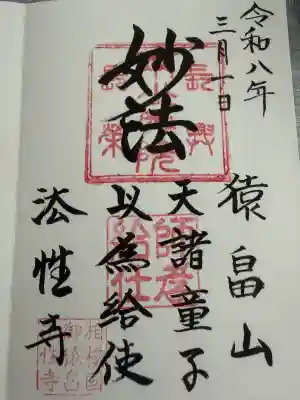 令和八年
三月一日
妙法
猿畠山
天諸童子
以為給使
法性寺